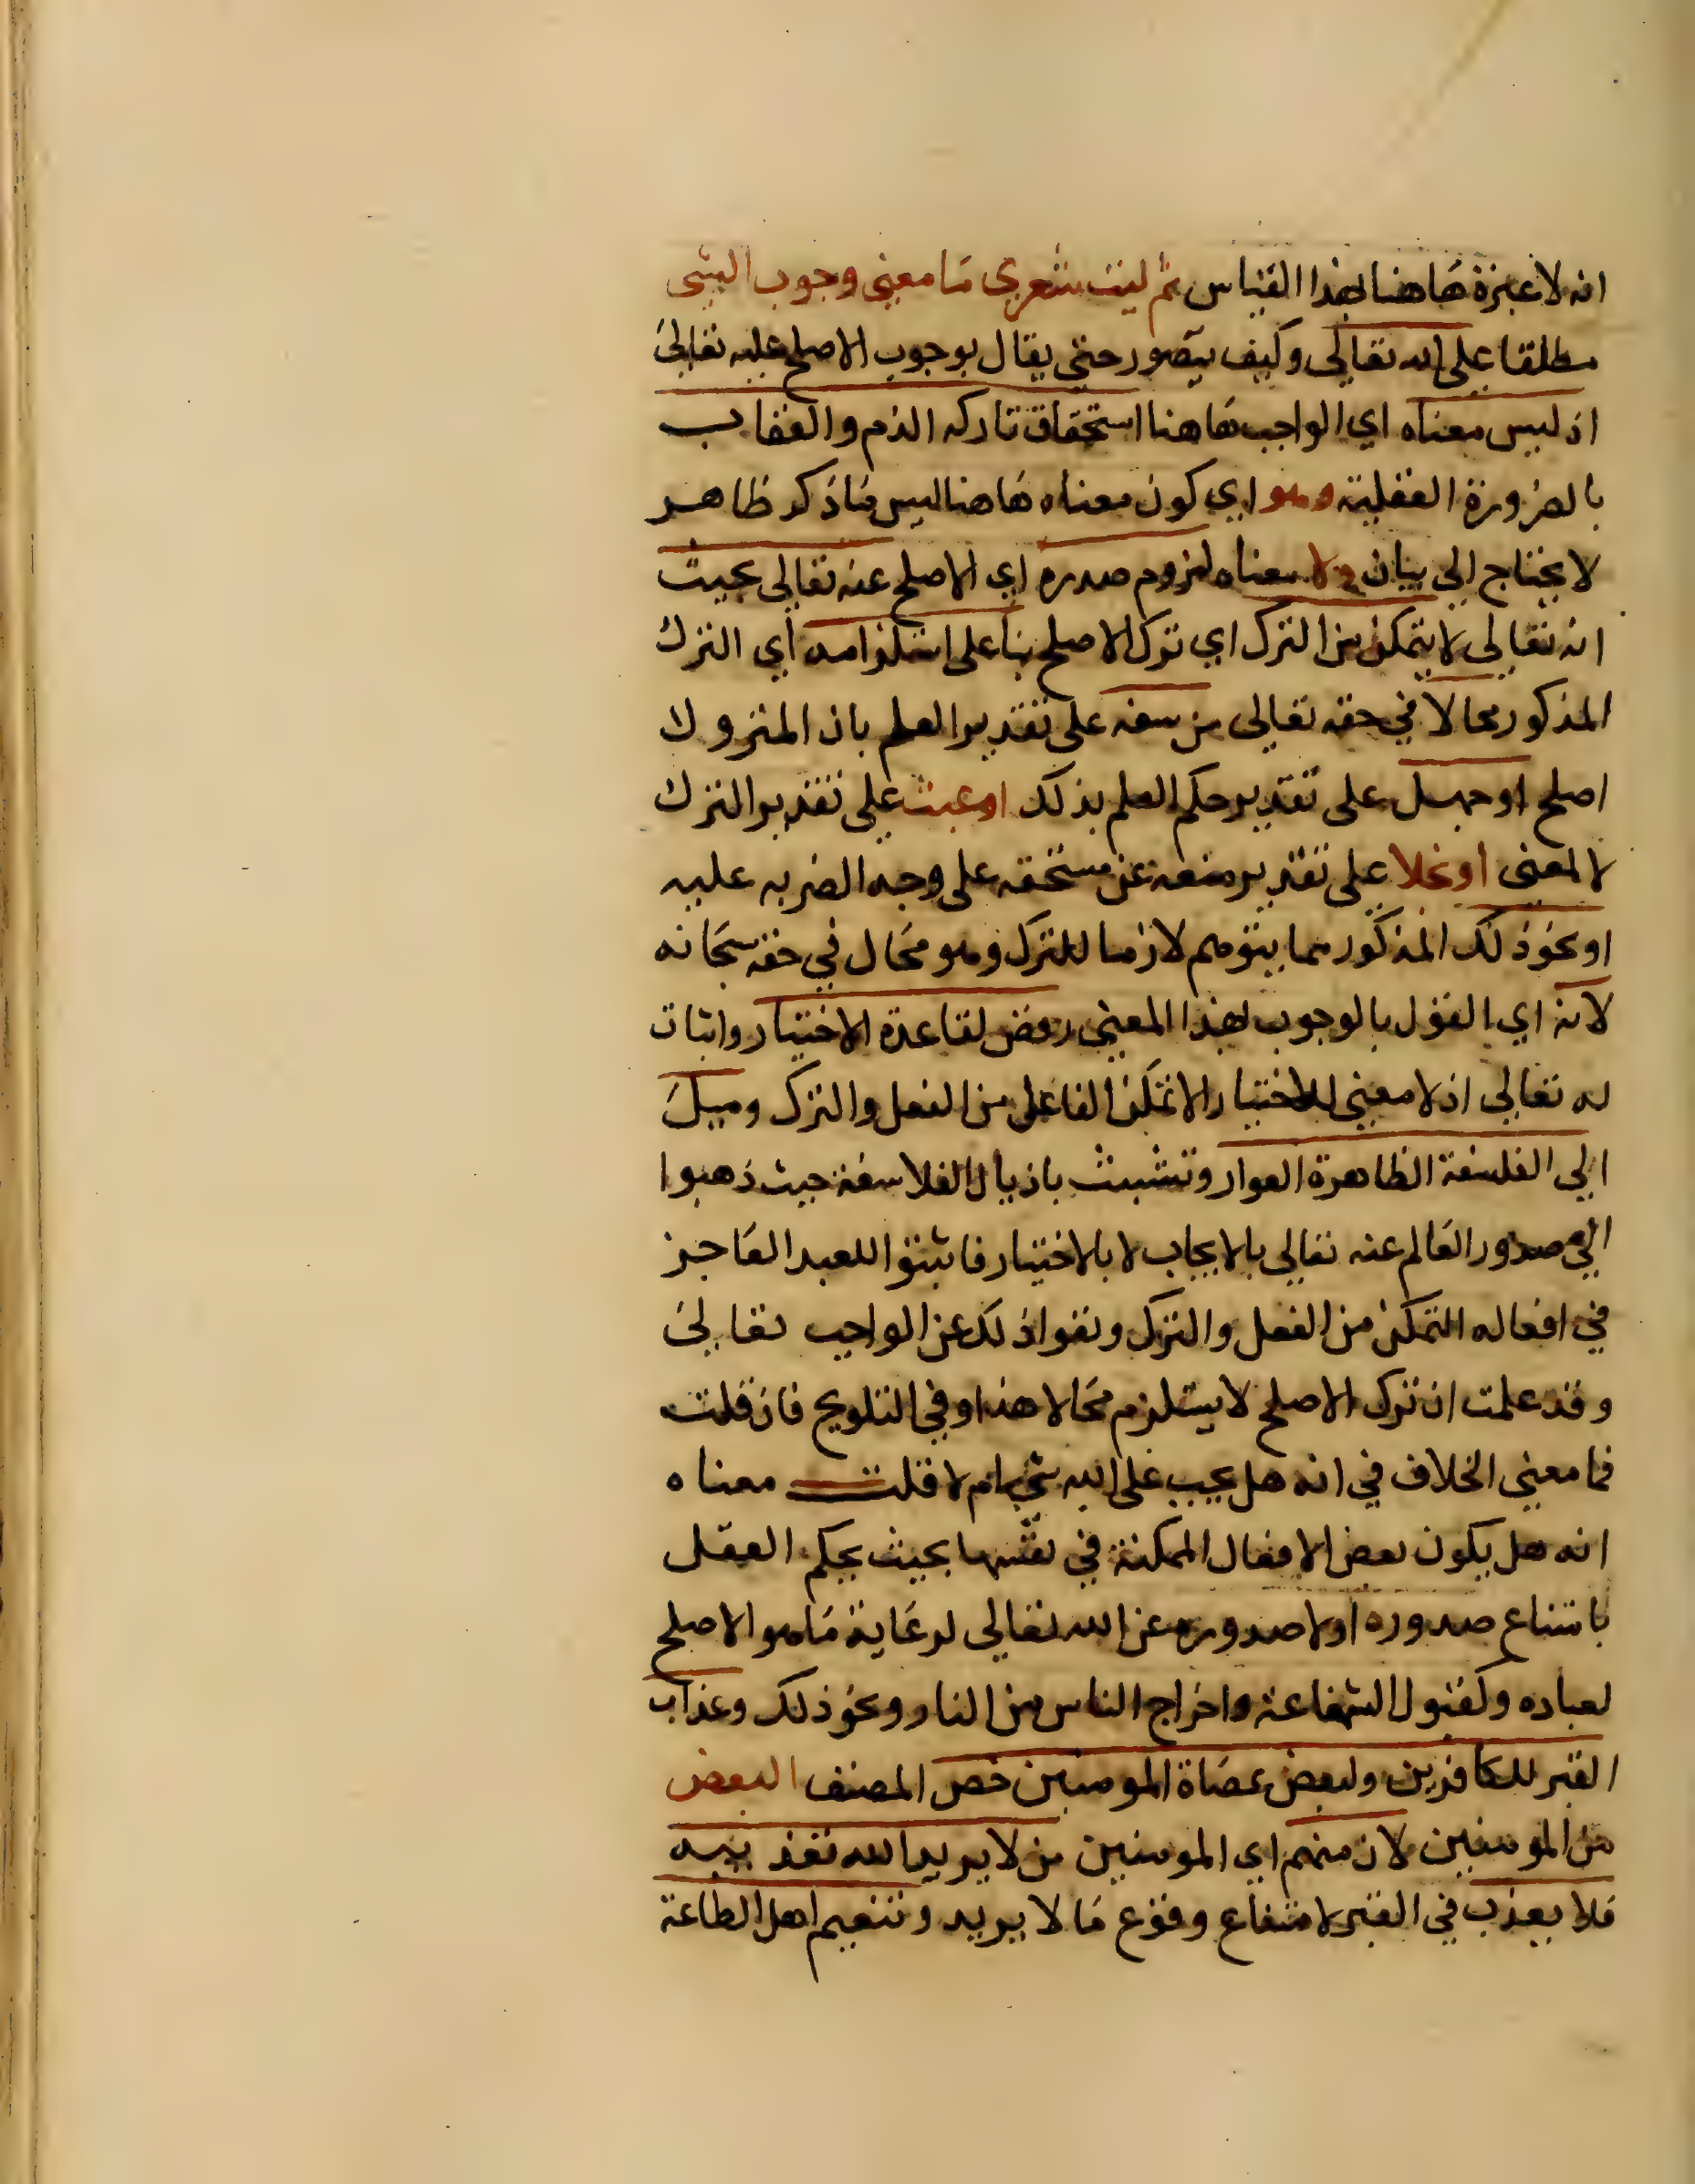 انه لا عبرة هاهنا بهذا القياس ثم ليت شعري ما معنى وجوب الشى
مطلقا على الله تعالى وكيف يتصور حتى يقال بوجوب الاصلح عليه تعالى
اذ ليس معناه اي الواجب هاهنا استحقاق تاركه الذم والعقاب
بالضرورة العقلية وهو اي كون معناه هاهنا ليس ما ذكر ظاهر
لا يحتاج الى بيان ولا معناه لزوم صدوره اي الاصلح عنه تعالى بحيث
انه تعالى لا يتمكن من الترك اي ترك الاصلح بنا على استلزامه اي الترك
المذكور محالا في حقه تعالى من سفه على تقدير العلم بان المتروك
اصلح او جهل على تقدير حكم العلم بذلك او عبث على تقدير الترك
لا لمعنى او بخلا على تقدير منعه عن مستحقه على وجه الضربه عليه
او نحو ذلك المذكور مما يتوهم لازما للترك وهو محال في حقه سبحانه
لانه اي القول بالوجوب لهذا المعنى رفض لقاعدة الاختيار واثبات
له تعالى اذ لا معنى للاختيار الا تمكن الفاعل من الفعل والترك وميل
الى الفلسفة الظاهرة العوار وتشبث باذيال الفلاسفة حيث ذهبوا
الى صدور العالم عنه تعالى بالايجاب لا بالاختيار فاثبتوا للعبد العاجز
في افعاله التمكن من الفعل والترك ونفوا ذلك عن الواجب تعالى
وقد علمت ان ترك الاصلح لا يستلزم محالا هذا وفي التلويح فان قلت
فما معنى الخلاف في انه هل يجب على الله شي ام لا قلت معناه
انه هل يكون بعض الافعال الممكنة في نفسها بحيث يحكم العقل
بامتناع صدوره او لا صدوره عن الله تعالى لرعاية ما هو الاصلح
لعباده وكقبول الشفاعة واخراج الناس من النار ونحو ذلك وعذاب
القبر للكافرين ولبعض عصاة المومنين خص المصنف البعض
من المومنين لان منهم اي المومنين من لا يريد الله تعذيبه
فلا يعذب في القبر لامتناع وقوع ما لا يريد وتنعيم اهل الطاعة